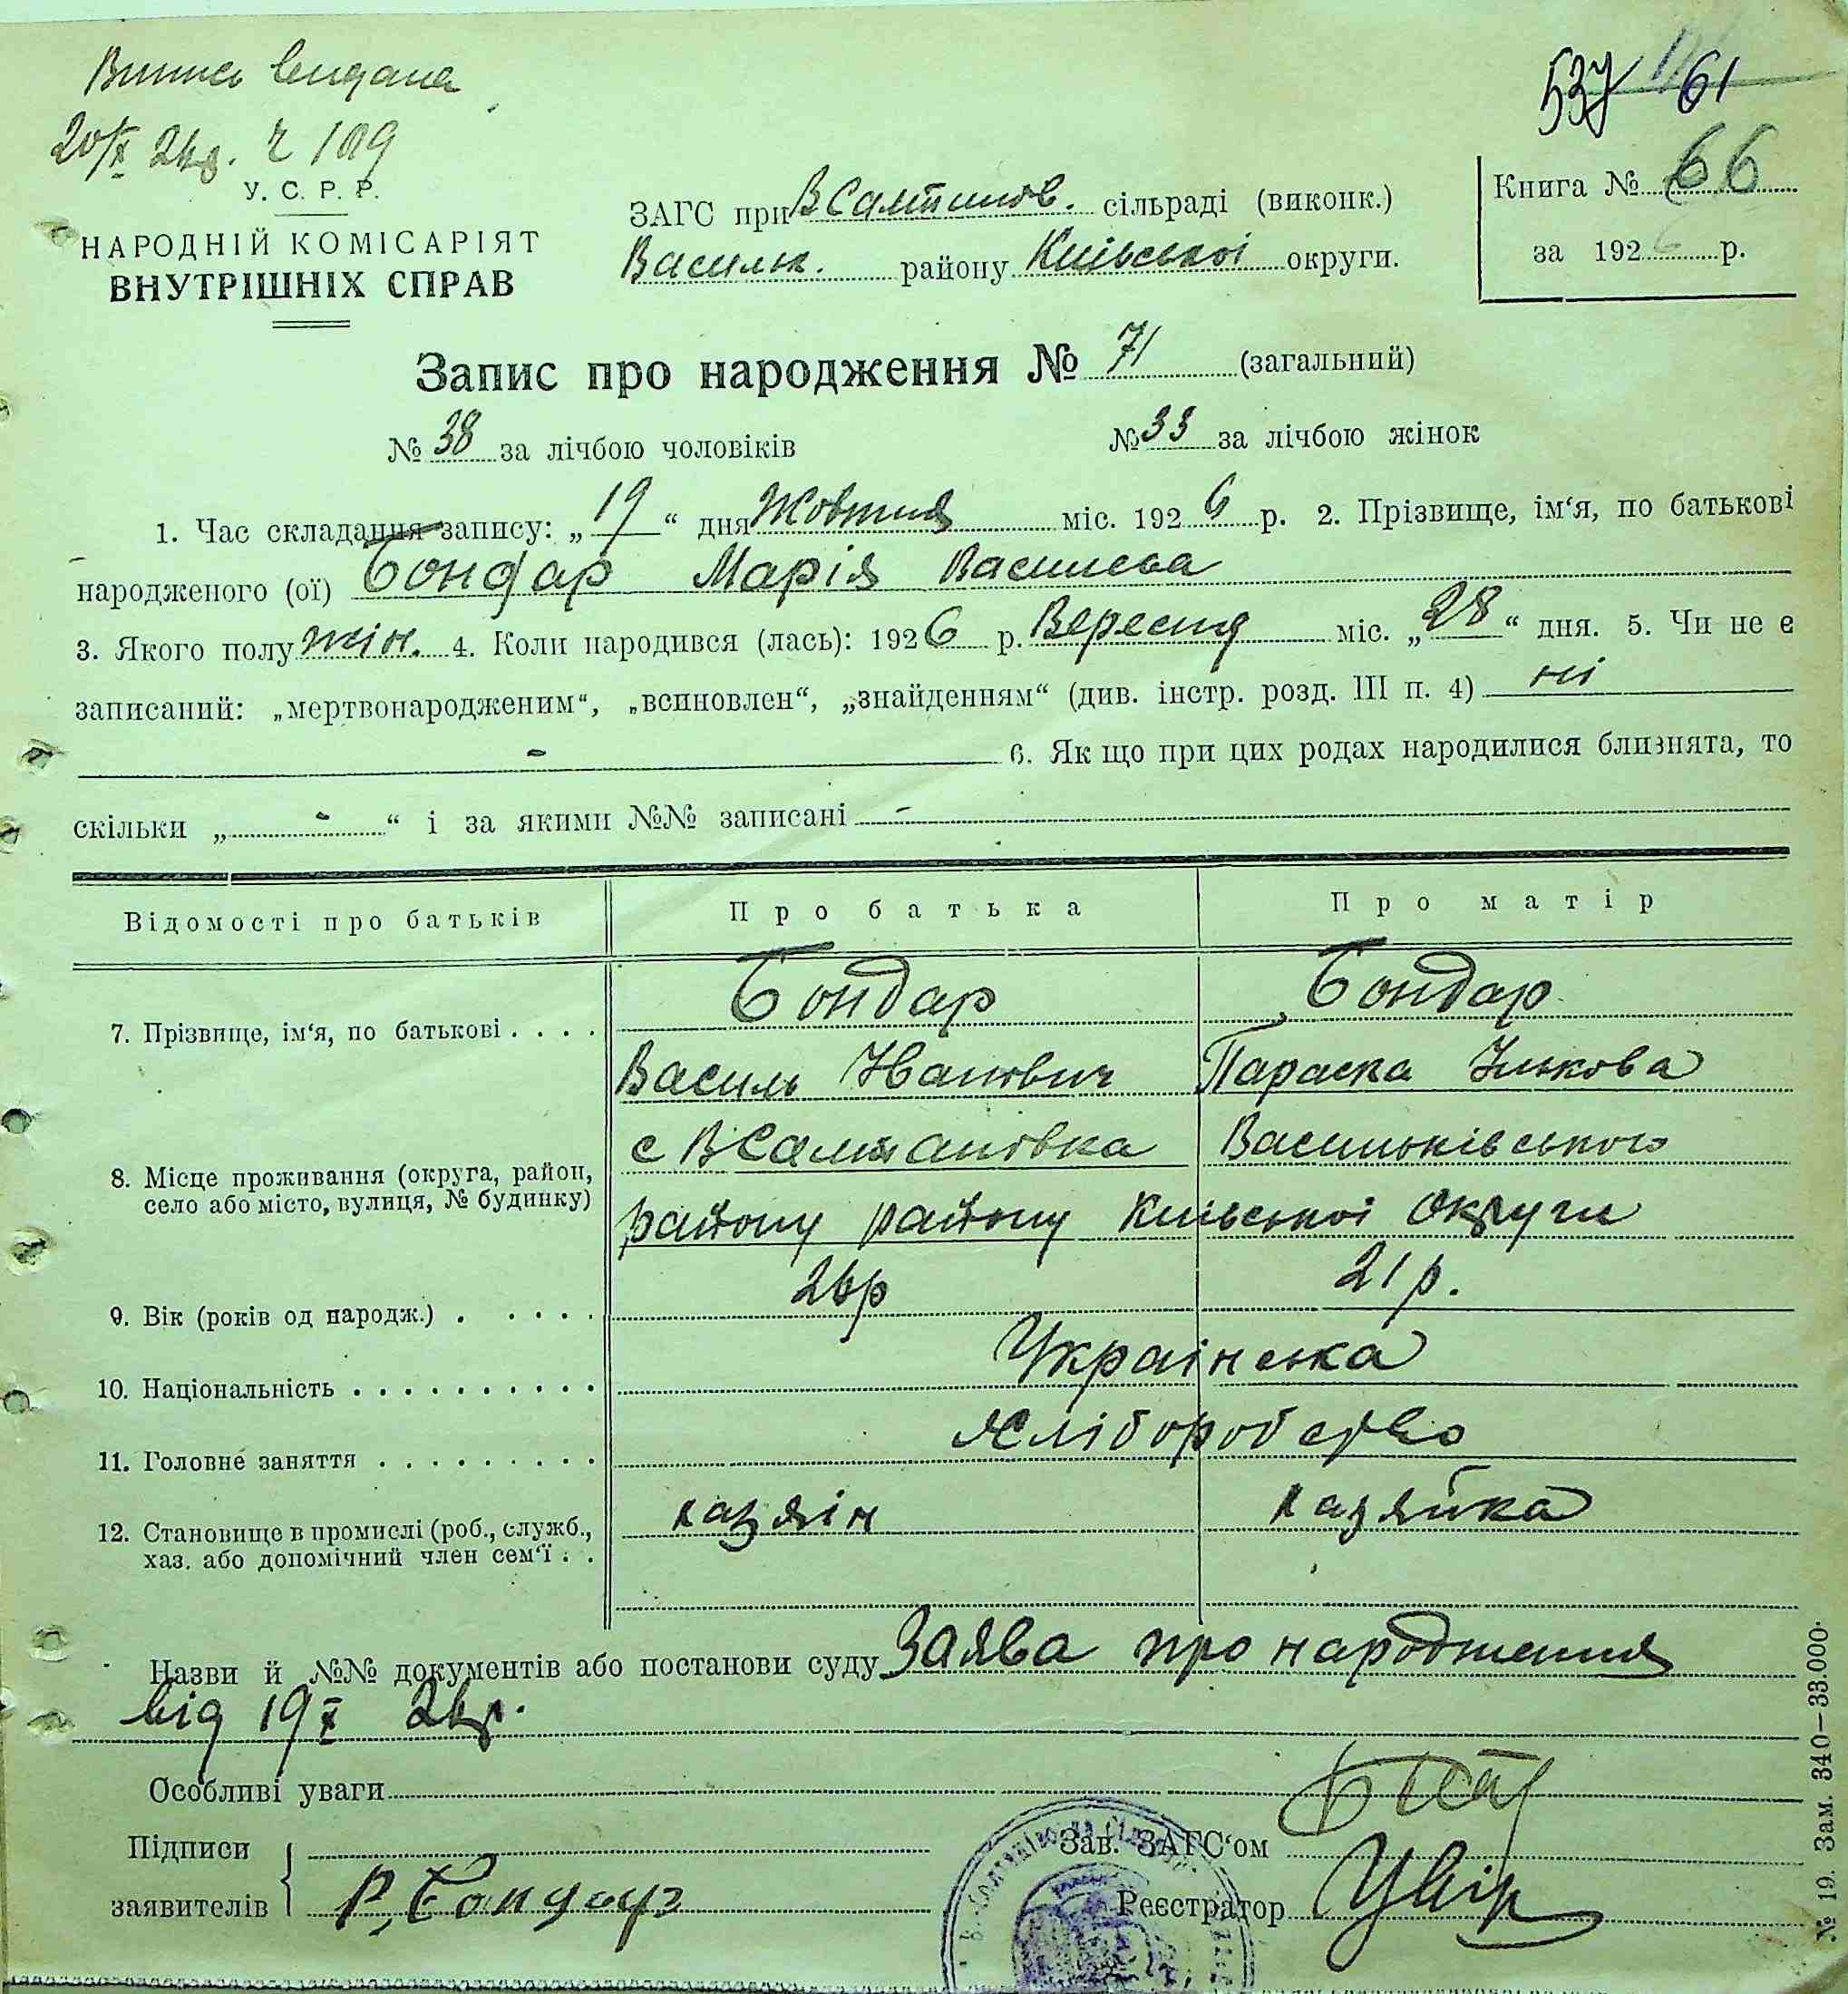 Випись видана
20/X 26р. 2 109
537 61
У. С. Р. Р.
НАРОДНІЙ КОМІСАРІЯТ
ВНУТРІШНІХ СПРАВ
ЗАГС при ВСалтанов. сільраді (виконк.)
Васильк. району Київської округи.
Книга № 66
за 1926 р.
Запис про народження № 71 (загальний)
№ 38 за лічбою чоловіків № 33 за лічбою жінок
1. Час складання запису: „19“ дня Жовтня міс. 1926 р. 2. Прізвище, ім‘я, по батькові
народженого (ої) Бондар Марія Василева
3. Якого полу жін. 4. Коли народився (лась): 1926 р. Вересня міс. „28“ дня. 5. Чи не є
записаний: „мертвонародженим“, „всиновлен“, „знайденням“ (див. інстр. розд. III п. 4) ні
- 6. Як що при цих родах народилися близнята, то
скільки „ - “ і за якими №№ записані -
Відомості про батьків Про батька Про матір
7. Прізвище, ім‘я, по батькові . . . . Бондар Бондар
Василь Іванович Параска Ількова
8. Місце проживання (округа, район, село або місто, вулиця, № будинку) с ВСалтанівка Васильківського
району району Київської Округи
9. Вік (років од народж.) . . . . . 26р 21р.
10. Національність . . . . . . . . . . Українська
11. Головне заняття . . . . . . . . . Хліборобство
12. Становище в промислі (роб., служб., хаз. або допомічний член сем‘ї . . хазяїн хазяйка
Назви й №№ документів або постанови суду Заява про народження
від 19 X 26р.
Особливі уваги
Підписи
заявителів Р. Бондар
Зав. ЗАГС‘ом
Реєстратор
№ 19. Зам. 340—33.000.